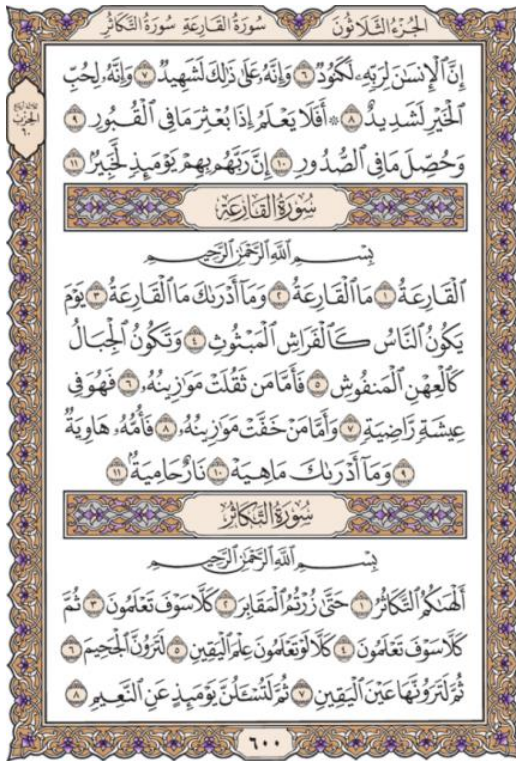 الجزء الثلاثون سورة القارعة سورة التكاثر
إِنَّ ٱلْإِنسَـٰنَ لِرَبِّهِۦ لَكَنُودٌ ٦ وَإِنَّهُۥ عَلَىٰ ذَٰلِكَ لَشَهِيدٌ ٧ وَإِنَّهُۥ لِحُبِّ
ٱلْخَيْرِ لَشَدِيدٌ ٨ ۞ أَفَلَا يَعْلَمُ إِذَا بُعْثِرَ مَا فِى ٱلْقُبُورِ ٩
وَحُصِّلَ مَا فِى ٱلصُّدُورِ ١٠ إِنَّ رَبَّهُم بِهِمْ يَوْمَئِذٍ لَّخَبِيرٌۢ ١١
ثلاثة أرباع
الحزب
٦٠
سورة القارعة
بِسْمِ ٱللَّهِ ٱلرَّحْمَـٰنِ ٱلرَّحِيمِ
ٱلْقَارِعَةُ ١ مَا ٱلْقَارِعَةُ ٢ وَمَآ أَدْرَىٰكَ مَا ٱلْقَارِعَةُ ٣ يَوْمَ
يَكُونُ ٱلنَّاسُ كَٱلْفَرَاشِ ٱلْمَبْثُوثِ ٤ وَتَكُونُ ٱلْجِبَالُ
كَٱلْعِهْنِ ٱلْمَنفُوشِ ٥ فَأَمَّا مَن ثَقُلَتْ مَوَٰزِينُهُۥ ٦ فَهُوَ فِى
عِيشَةٍ رَّاضِيَةٍ ٧ وَأَمَّا مَنْ خَفَّتْ مَوَٰزِينُهُۥ ٨ فَأُمُّهُۥ هَاوِيَةٌ
٩ وَمَآ أَدْرَىٰكَ مَا هِيَهْ ١٠ نَارٌ حَامِيَةٌۢ ١١
سورة التكاثر
بِسْمِ ٱللَّهِ ٱلرَّحْمَـٰنِ ٱلرَّحِيمِ
أَلْهَىٰكُمُ ٱلتَّكَاثُرُ ١ حَتَّىٰ زُرْتُمُ ٱلْمَقَابِرَ ٢ كَلَّا سَوْفَ تَعْلَمُونَ ٣ ثُمَّ
كَلَّا سَوْفَ تَعْلَمُونَ ٤ كَلَّا لَوْ تَعْلَمُونَ عِلْمَ ٱلْيَقِينِ ٥ لَتَرَوُنَّ ٱلْجَحِيمَ ٦
ثُمَّ لَتَرَوُنَّهَا عَيْنَ ٱلْيَقِينِ ٧ ثُمَّ لَتُسْـَٔلُنَّ يَوْمَئِذٍ عَنِ ٱلنَّعِيمِ ٨
٦٠٠